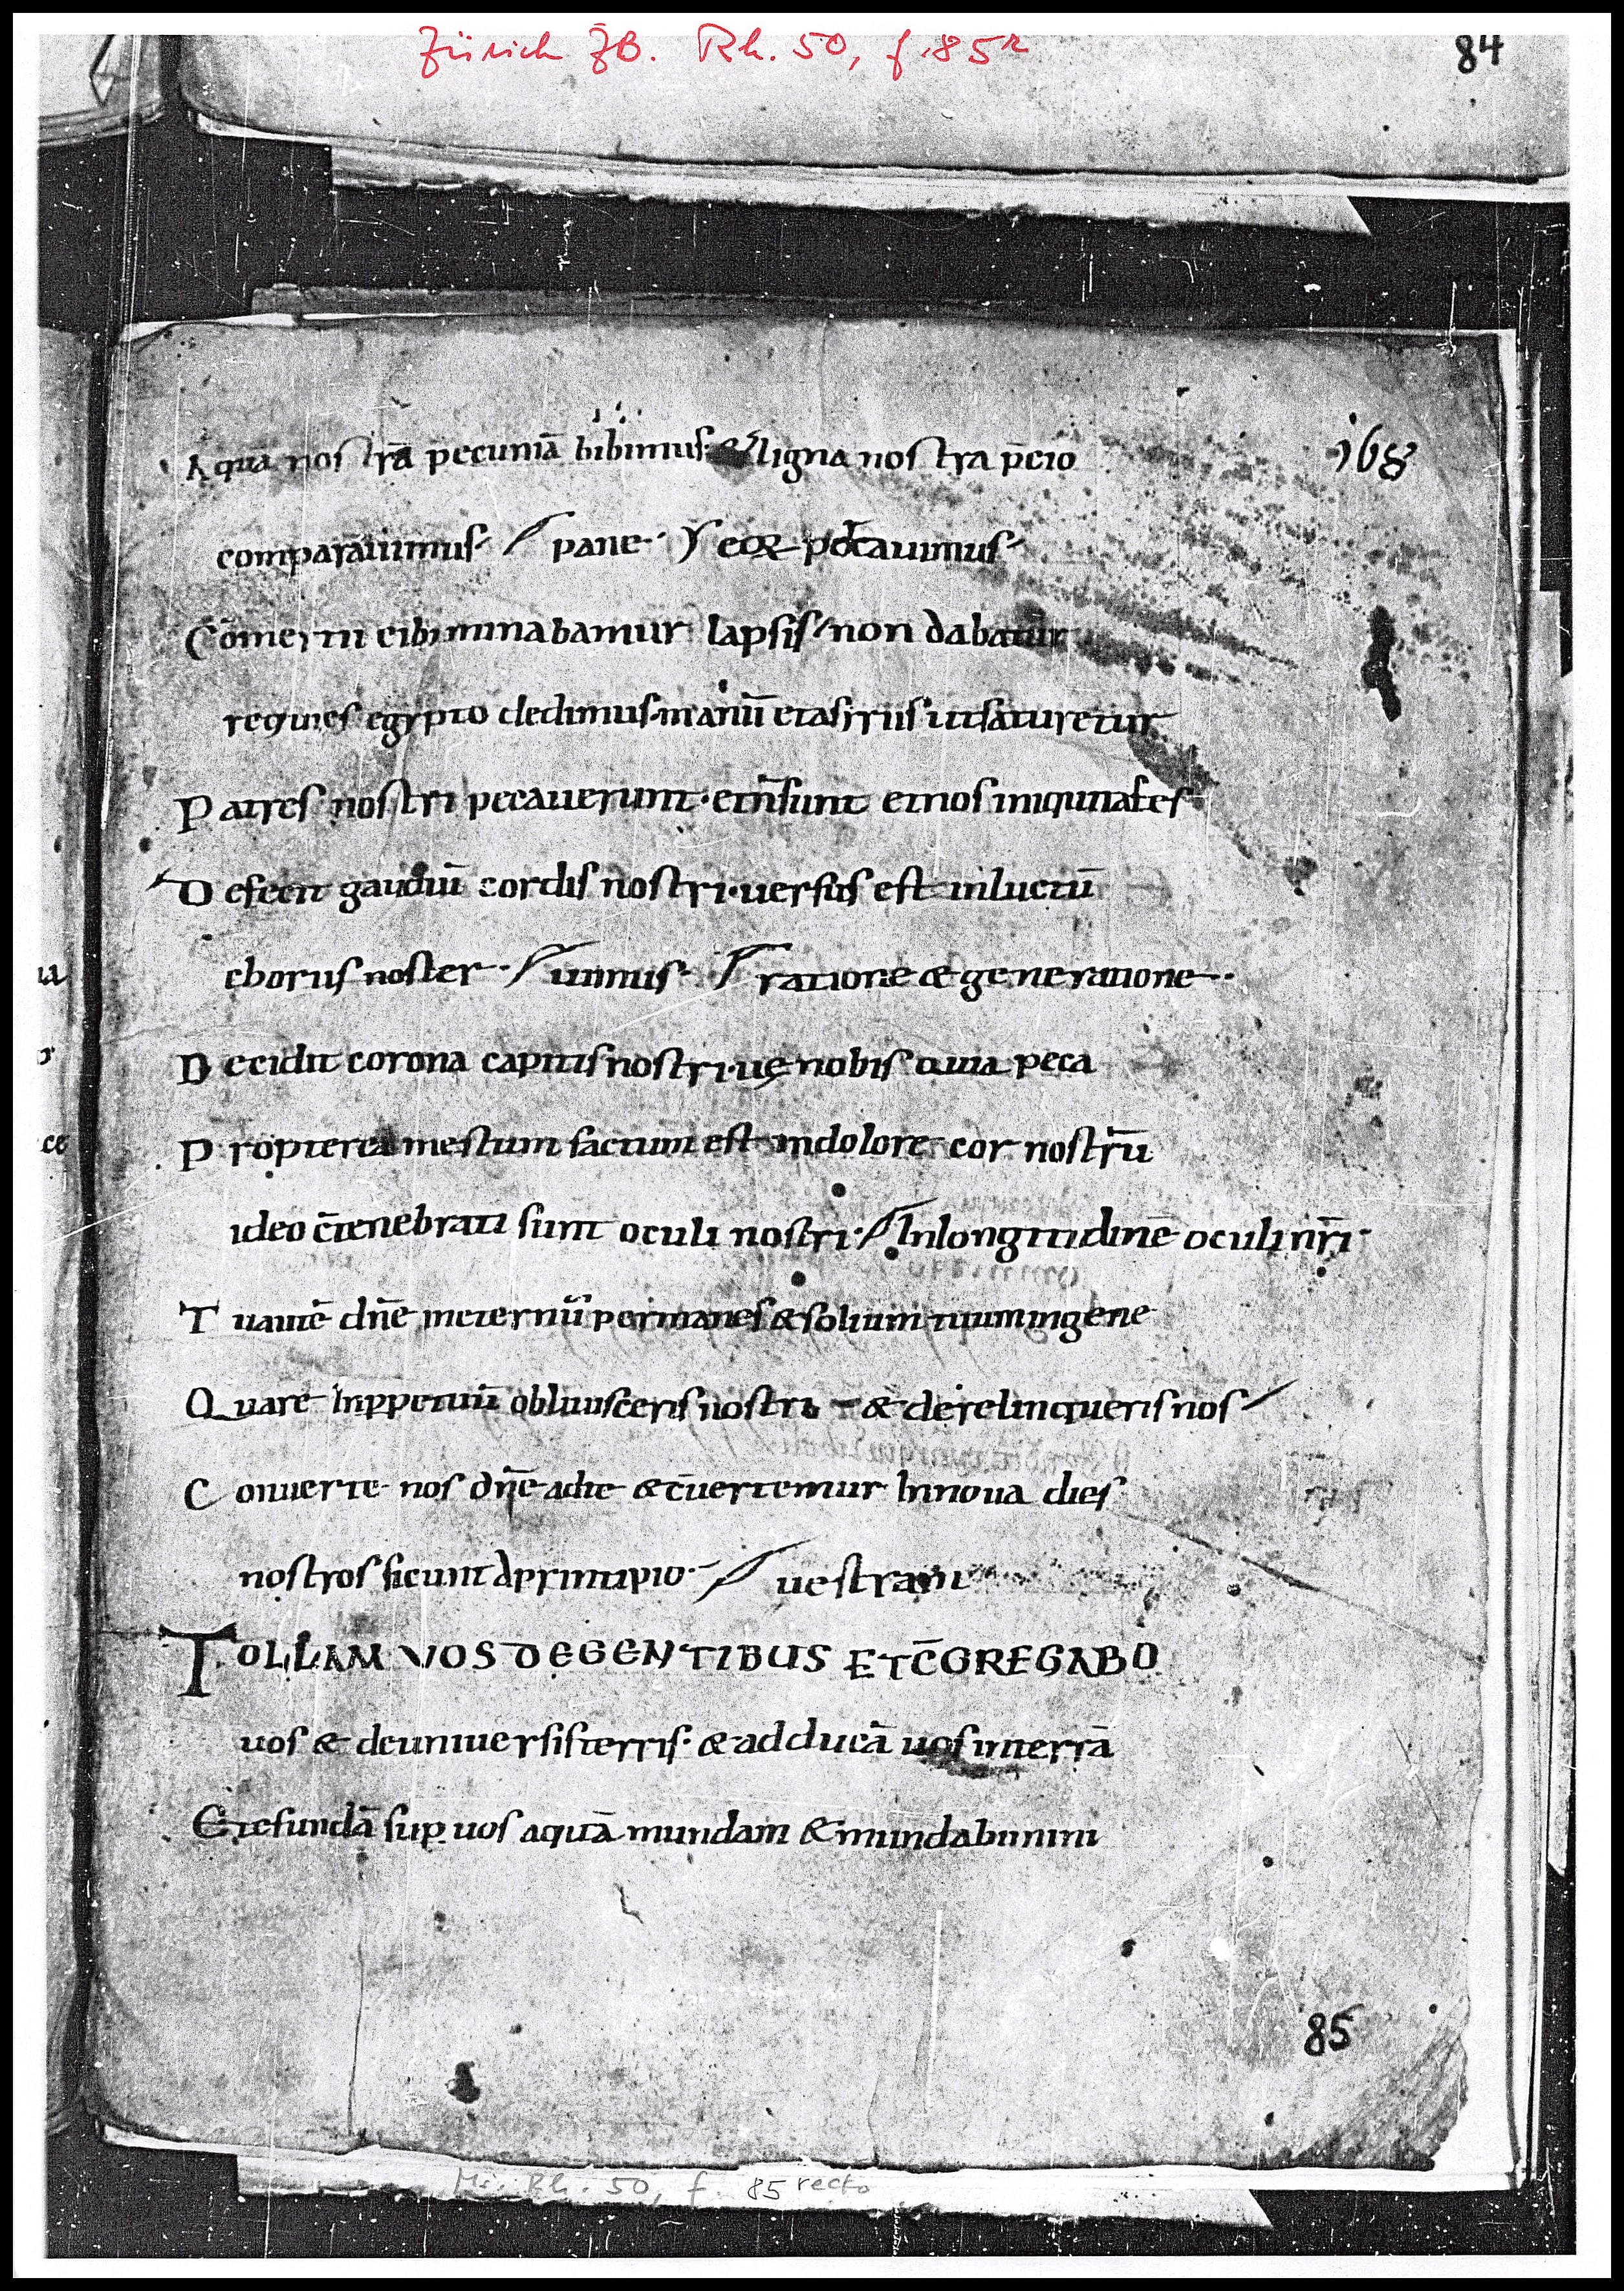 Zürich ZB. Rh. 50, f. 85r
84
Aquā nostrā pecuniā bibimus· & ligna nostra p̄cio
168
comparauimus· pane· eoꝝ portauimus·
minabamur lapsis non dabatur
requies egypto dedimus manū et asiriis ut saturetur
Patres nostri pecauerunt· et n̄ sunt et nos iniquitates
Defecit gaudiū cordis nostri· uersus est inluctū
chorus noster· uimus· ratione & generatione·
Decidit corona capitis nostri· uę nobis quia peca
Propterea mestum factum est indolore cor nostrū
ideo c̄tenebrati sunt oculi nostri· Inlongitudinē oculi nr̄i·
Tu autē dn̄e ineternū permanes & solium tuum ingene
Quare Inppetuū obliuisceris nostri & derelinqueris nos
Conuerte nos dn̄e adte & c̄uertemur Innoua dies
nostros sicut aprincipio· uestram
TOLLAM VOS DEGENTIBUS ETC̄GREGABO
uos & deuniuersisterris· & adducā uos interrā
Etefundā sup uos aquā mundam & mundabimini
85
Ms. Rh. 50, f. 85 recto